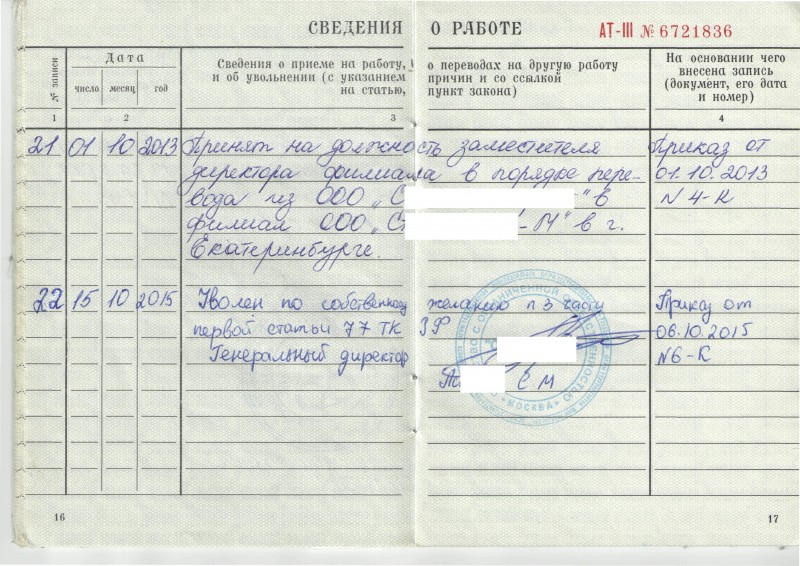 СВЕДЕНИЯ О РАБОТЕ
АТ-III № 6721836
№ записи
Дата
число месяц год
Сведения о приеме на работу, о переводах на другую работу
и об увольнении (с указанием причин и со ссылкой
на статью, пункт закона)
На основании чего
внесена запись
(документ, его дата
и номер)
1 2 3 4
21 01 10 2013 Принят на должность заместителя Приказ от
директора филиала в порядке пере- 01.10.2013
вода из ООО „С " в N 4-К
филиал ООО „С -М" в г.
Екатеринбурге.
22 15 10 2015 Уволен по собственному желанию п 3 части Приказ от
первой статьи 77 ТК РФ 06.10.2015
Генеральный директор N6-К
С М
С ОГРАНИЧЕННОЙ
«МОСКВА»
16 17